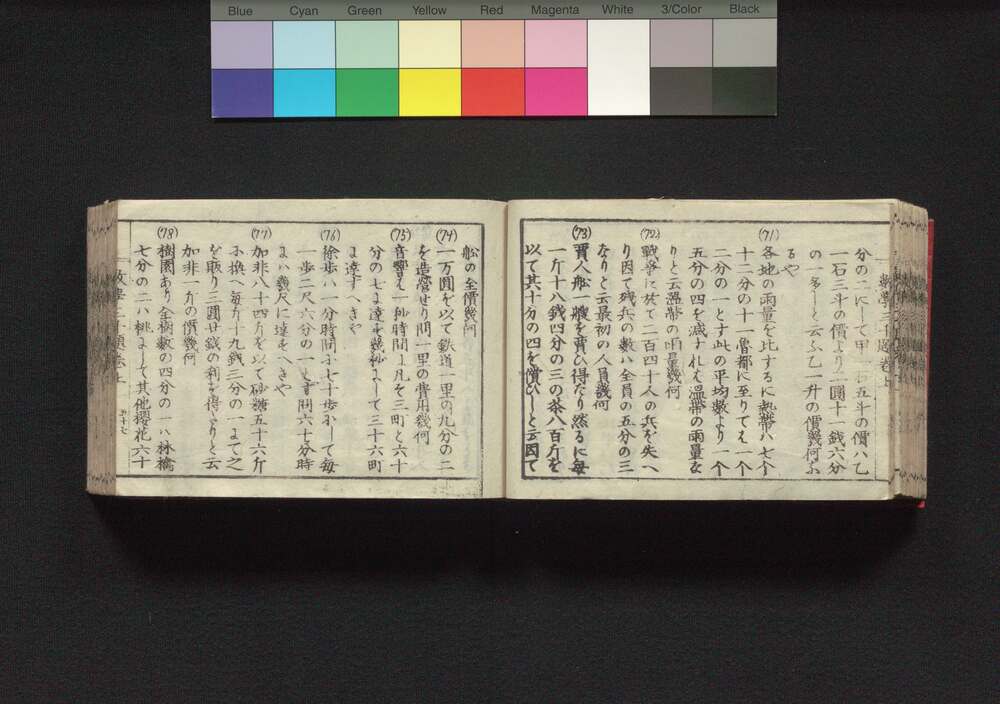 Blue Cyan Green Yellow Red Magenta White 3/Color Black
分の二にして甲 五斗の價ハ乙
一石三斗の價より二圓十一銭六分
の一多しと云ふ乙一升の價幾何ふ
るや
(71) 各地の雨量を比するに熱帶ハ七个
十二分の十一魯都に至りてハ一个
二分の一とす此の平均數より一个
五分の四を減すれハ温帶の雨量な
りと云温帶の雨量幾何
(72) 戰爭に於て二百四十人の兵を失へ
り因て残兵の數ハ全員の五分の三
なりと云最初の人員幾何
(73) 賈人舩一艘を買ひ得たり然るに毎
一斤十八銭四分の三の茶八百斤を
以て其十分の四を償ひしと云因て
舩の全價幾何
(74) 一万圓を以て鉄道一里の九分の二
を造營せり問一里の費用幾何
(75) 音響ハ一秒時間に凡を三町と六十
分の七に達す幾秒にして三十六町
に達すへきや
(76) 徐歩ハ一分時間に七十歩にして毎
一歩二尺六分の一とす問六十分時
にハ幾尺に達すへきや
(77) 加非八十四斤を以て砂糖五十六斤
に換へ毎斤十九銭三分の一まて之
を販り三圓廿銭の利を得たりと云
加非一斤の價幾何
(78) 樹園あり全樹數の四分の一ハ林檎
七分の二ハ桃にして其他櫻花六十